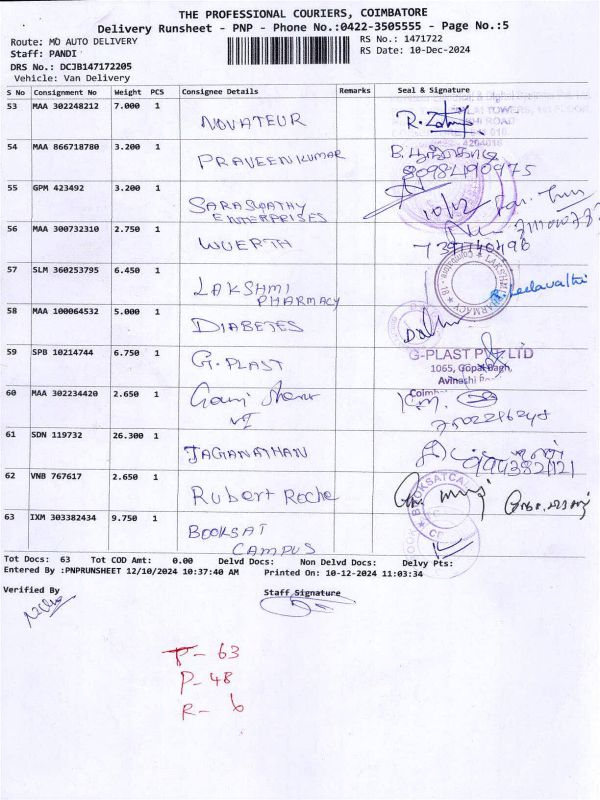 THE PROFESSIONAL COURIERS, COIMBATORE
Delivery Runsheet - PNP - Phone No.:0422-3505555 - Page No.:5
Route: MD AUTO DELIVERY
Staff: PANDI
DRS No.: DCJB147172205
Vehicle: Van Delivery
RS No.: 1471722
RS Date: 10-Dec-2024
S No Consignment No Weight PCS Consignee Details Remarks Seal & Signature
53 MAA 302248212 7.000 1 NOVATEUR
54 MAA 866718780 3.200 1 PRAVEENKUMAR
8098490975
55 GPM 423492 3.200 1 SARASWATHY
ENTERPRISES
10/12
56 MAA 300732310 2.750 1 WUERTH
57 SLM 360253795 6.450 1 LAKSHMI
PHARMACY
58 MAA 100064532 5.000 1 DIABETES
59 SPB 10214744 6.750 1 G-PLAST
G-PLAST PVT LTD
1065, Gopal Bagh,
Avinashi
60 MAA 302234420 2.650 1
61 SDN 119732 26.300 1 JAGANATHAN
62 VNB 767617 2.650 1 Rubert Roche
63 IXM 303382434 9.750 1 BOOKSAT
CAMPUS
Tot Docs: 63 Tot COD Amt: 0.00 Delvd Docs: Non Delvd Docs: Delvy Pts:
Entered By :PNPRUNSHEET 12/10/2024 10:37:40 AM Printed On: 10-12-2024 11:03:34
Verified By
Staff Signature
T- 63
P- 48
R- 6